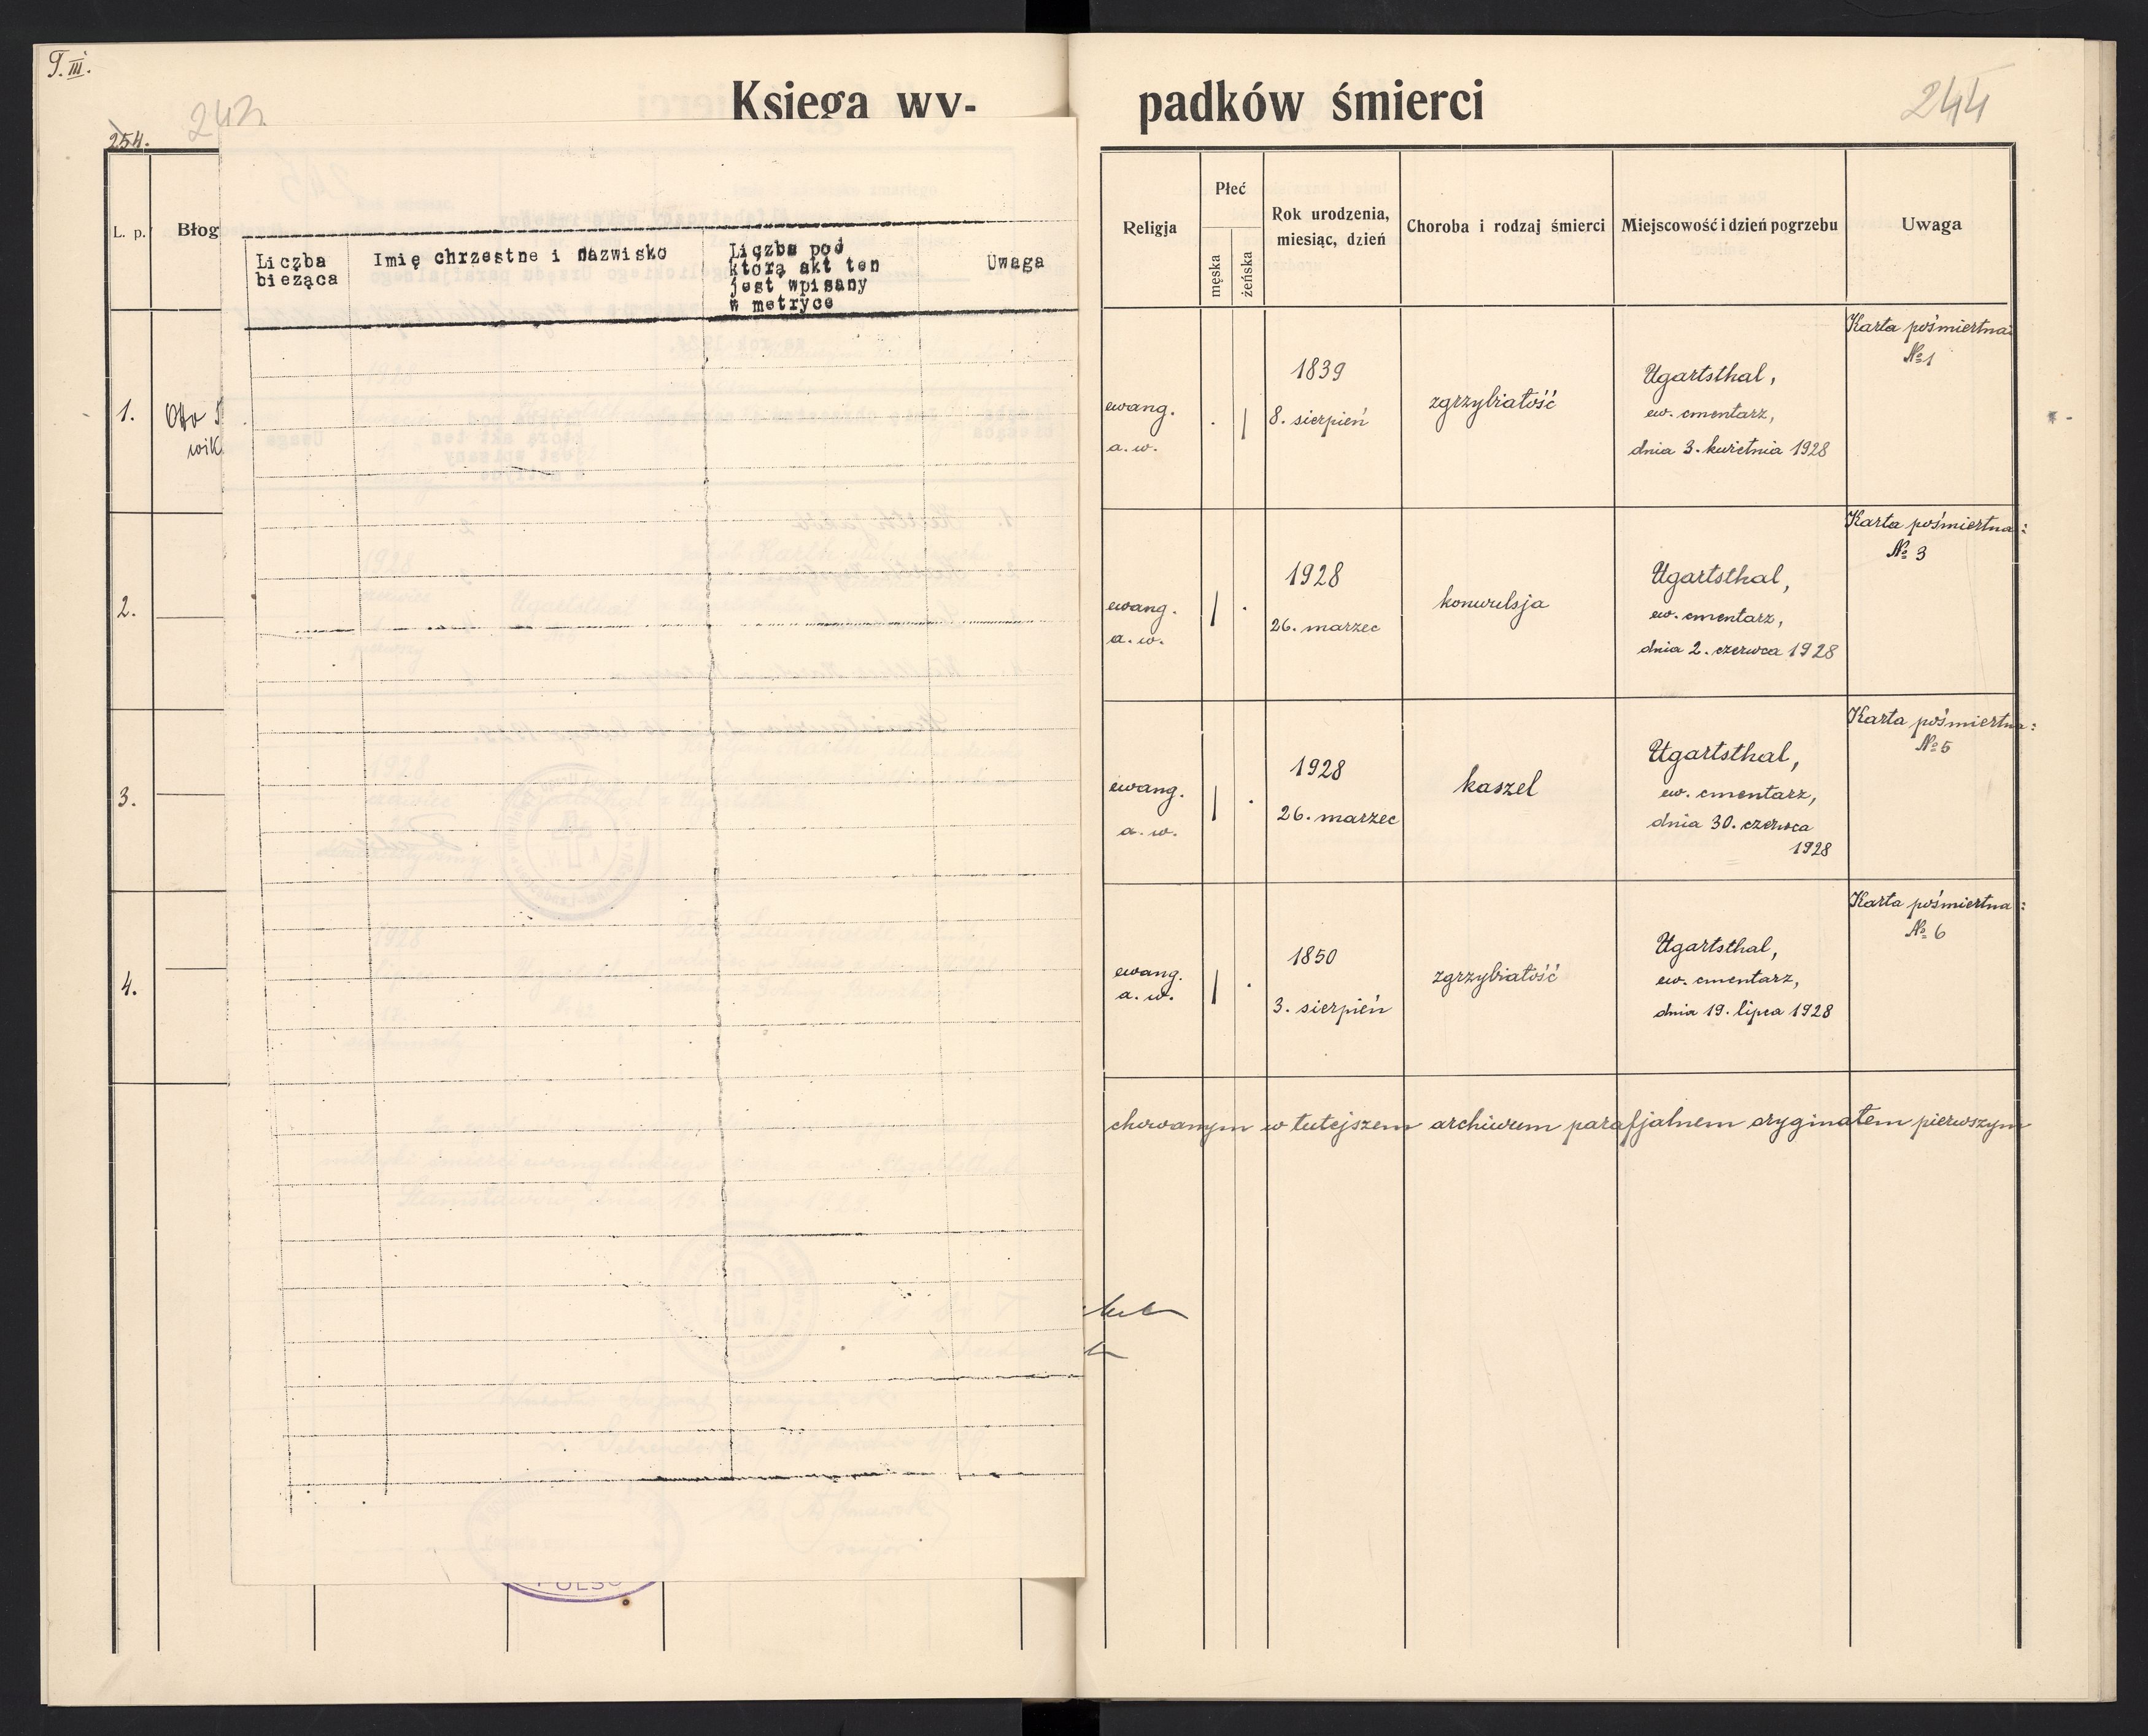 T. III.
243
254.
Księga wy-
L. p.
Błog
Liczba
bieżąca
Imię chrzestne i nazwisko
Liczba pod
którą akt ten
jest wpisany
w metryce
Uwaga
1.
Otto
wik
2.
3.
4.
padków śmierci
244
Religja
Płeć
męska
żeńska
Rok urodzenia,
miesiąc, dzień
Choroba i rodzaj śmierci
Miejscowość i dzień pogrzebu
Uwaga
ewang.
a. w.
1839
8. sierpień
zgrzybiałość
Ugartsthal,
ew. cmentarz,
dnia 3. kwietnia 1928
Karta pośmiertna:
№ 1
ewang.
a. w.
1928
26. marzec
konwulsja
Ugartsthal,
ew. cmentarz,
dnia 2. czerwca 1928
Karta pośmiertna:
№ 3
ewang.
a. w.
1928
26. marzec
kaszel
Ugartsthal,
ew. cmentarz,
dnia 30. czerwca
1928
Karta pośmiertna:
№ 5
ewang.
a. w.
1850
3. sierpień
zgrzybiałość
Ugartsthal,
ew. cmentarz,
dnia 19. lipca 1928
Karta pośmiertna:
№ 6
chowanym w tutejszem archiwum parafjalnem oryginałem pierwszym